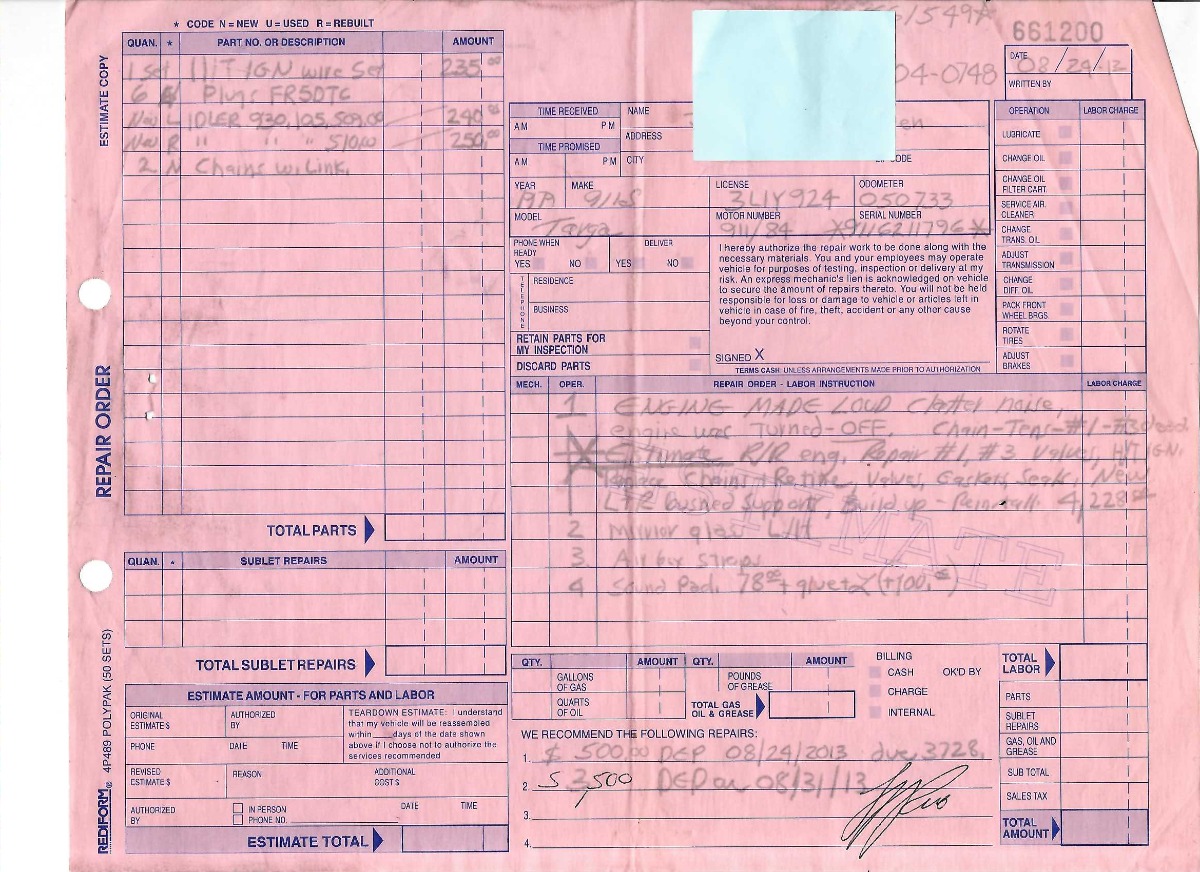 * CODE N = NEW U = USED R = REBUILT
1549*
661200
ESTIMATE COPY
QUAN. * PART NO. OR DESCRIPTION AMOUNT
1 Set H/T IGN wire Set 235.00
6 N Plugs FR5DTC
New L IDLER 930,105,509.00 240.00
New R " " " 510.00 250.
2 N Chains w. Link.
TOTAL PARTS
04-0748
DATE 08/24-13
WRITTEN BY
TIME RECEIVED
AM PM
TIME PROMISED
AM PM
NAME
ADDRESS
CITY
CODE
YEAR MAKE 911S
LICENSE 3LIY924
ODOMETER 050733
MODEL Targa
MOTOR NUMBER 911/84
SERIAL NUMBER *9116211796*
PHONE WHEN READY YES NO
DELIVER YES NO
TELEPHONE
RESIDENCE
BUSINESS
RETAIN PARTS FOR
MY INSPECTION
DISCARD PARTS
I hereby authorize the repair work to be done along with the
necessary materials. You and your employees may operate
vehicle for purposes of testing, inspection or delivery at my
risk. An express mechanic's lien is acknowledged on vehicle
to secure the amount of repairs thereto. You will not be held
responsible for loss or damage to vehicle or articles left in
vehicle in case of fire, theft, accident or any other cause
beyond your control.
SIGNED X
TERMS CASH UNLESS ARRANGEMENTS MADE PRIOR TO AUTHORIZATION
OPERATION LABOR CHARGE
LUBRICATE
CHANGE OIL
CHANGE OIL
FILTER CART.
SERVICE AIR
CLEANER
CHANGE
TRANS. OIL
ADJUST
TRANSMISSION
CHANGE
DIFF. OIL
PACK FRONT
WHEEL BRGS.
ROTATE
TIRES
ADJUST
BRAKES
MECH. OPER. REPAIR ORDER - LABOR INSTRUCTION LABOR CHARGE
1 ENGINE MADE LOUD Clatter noise,
engine was Turned-OFF. Chain-Tens-#1-#3 dead
Estimate R/R eng. Repair #1, #3 Valves, H/T IGN.
Chain + Retime, Valves, Gaskets, Seals, New
L+R bushed Support, Build up - Reinstall. 4,228
2 mirror glass L/H
3. Air box straps
4 Sound Pad. 78.00 + glue (+100.00)
ESTIMATE
REPAIR ORDER
QUAN. * SUBLET REPAIRS AMOUNT
TOTAL SUBLET REPAIRS
ESTIMATE AMOUNT - FOR PARTS AND LABOR
ORIGINAL ESTIMATE $
AUTHORIZED BY
PHONE DATE TIME
TEARDOWN ESTIMATE: I understand
that my vehicle will be reassembled
within ___ days of the date shown
above if I choose not to authorize the
services recommended
REVISED ESTIMATE $
REASON
ADDITIONAL COST $
AUTHORIZED BY
IN PERSON
PHONE NO.
DATE TIME
ESTIMATE TOTAL
REDIFORM® 4P489 POLYPAK (50 SETS)
QTY. AMOUNT QTY. AMOUNT
GALLONS OF GAS
POUNDS OF GREASE
QUARTS OF OIL
TOTAL GAS OIL & GREASE
BILLING
CASH OK'D BY
CHARGE
INTERNAL
WE RECOMMEND THE FOLLOWING REPAIRS:
1. $ 500.00 DEP 08/24/2013 due, 3728.
2. $ 3,500 DEP on 08/31/13
3.
4.
TOTAL LABOR
PARTS
SUBLET REPAIRS
GAS, OIL AND GREASE
SUB TOTAL
SALES TAX
TOTAL AMOUNT